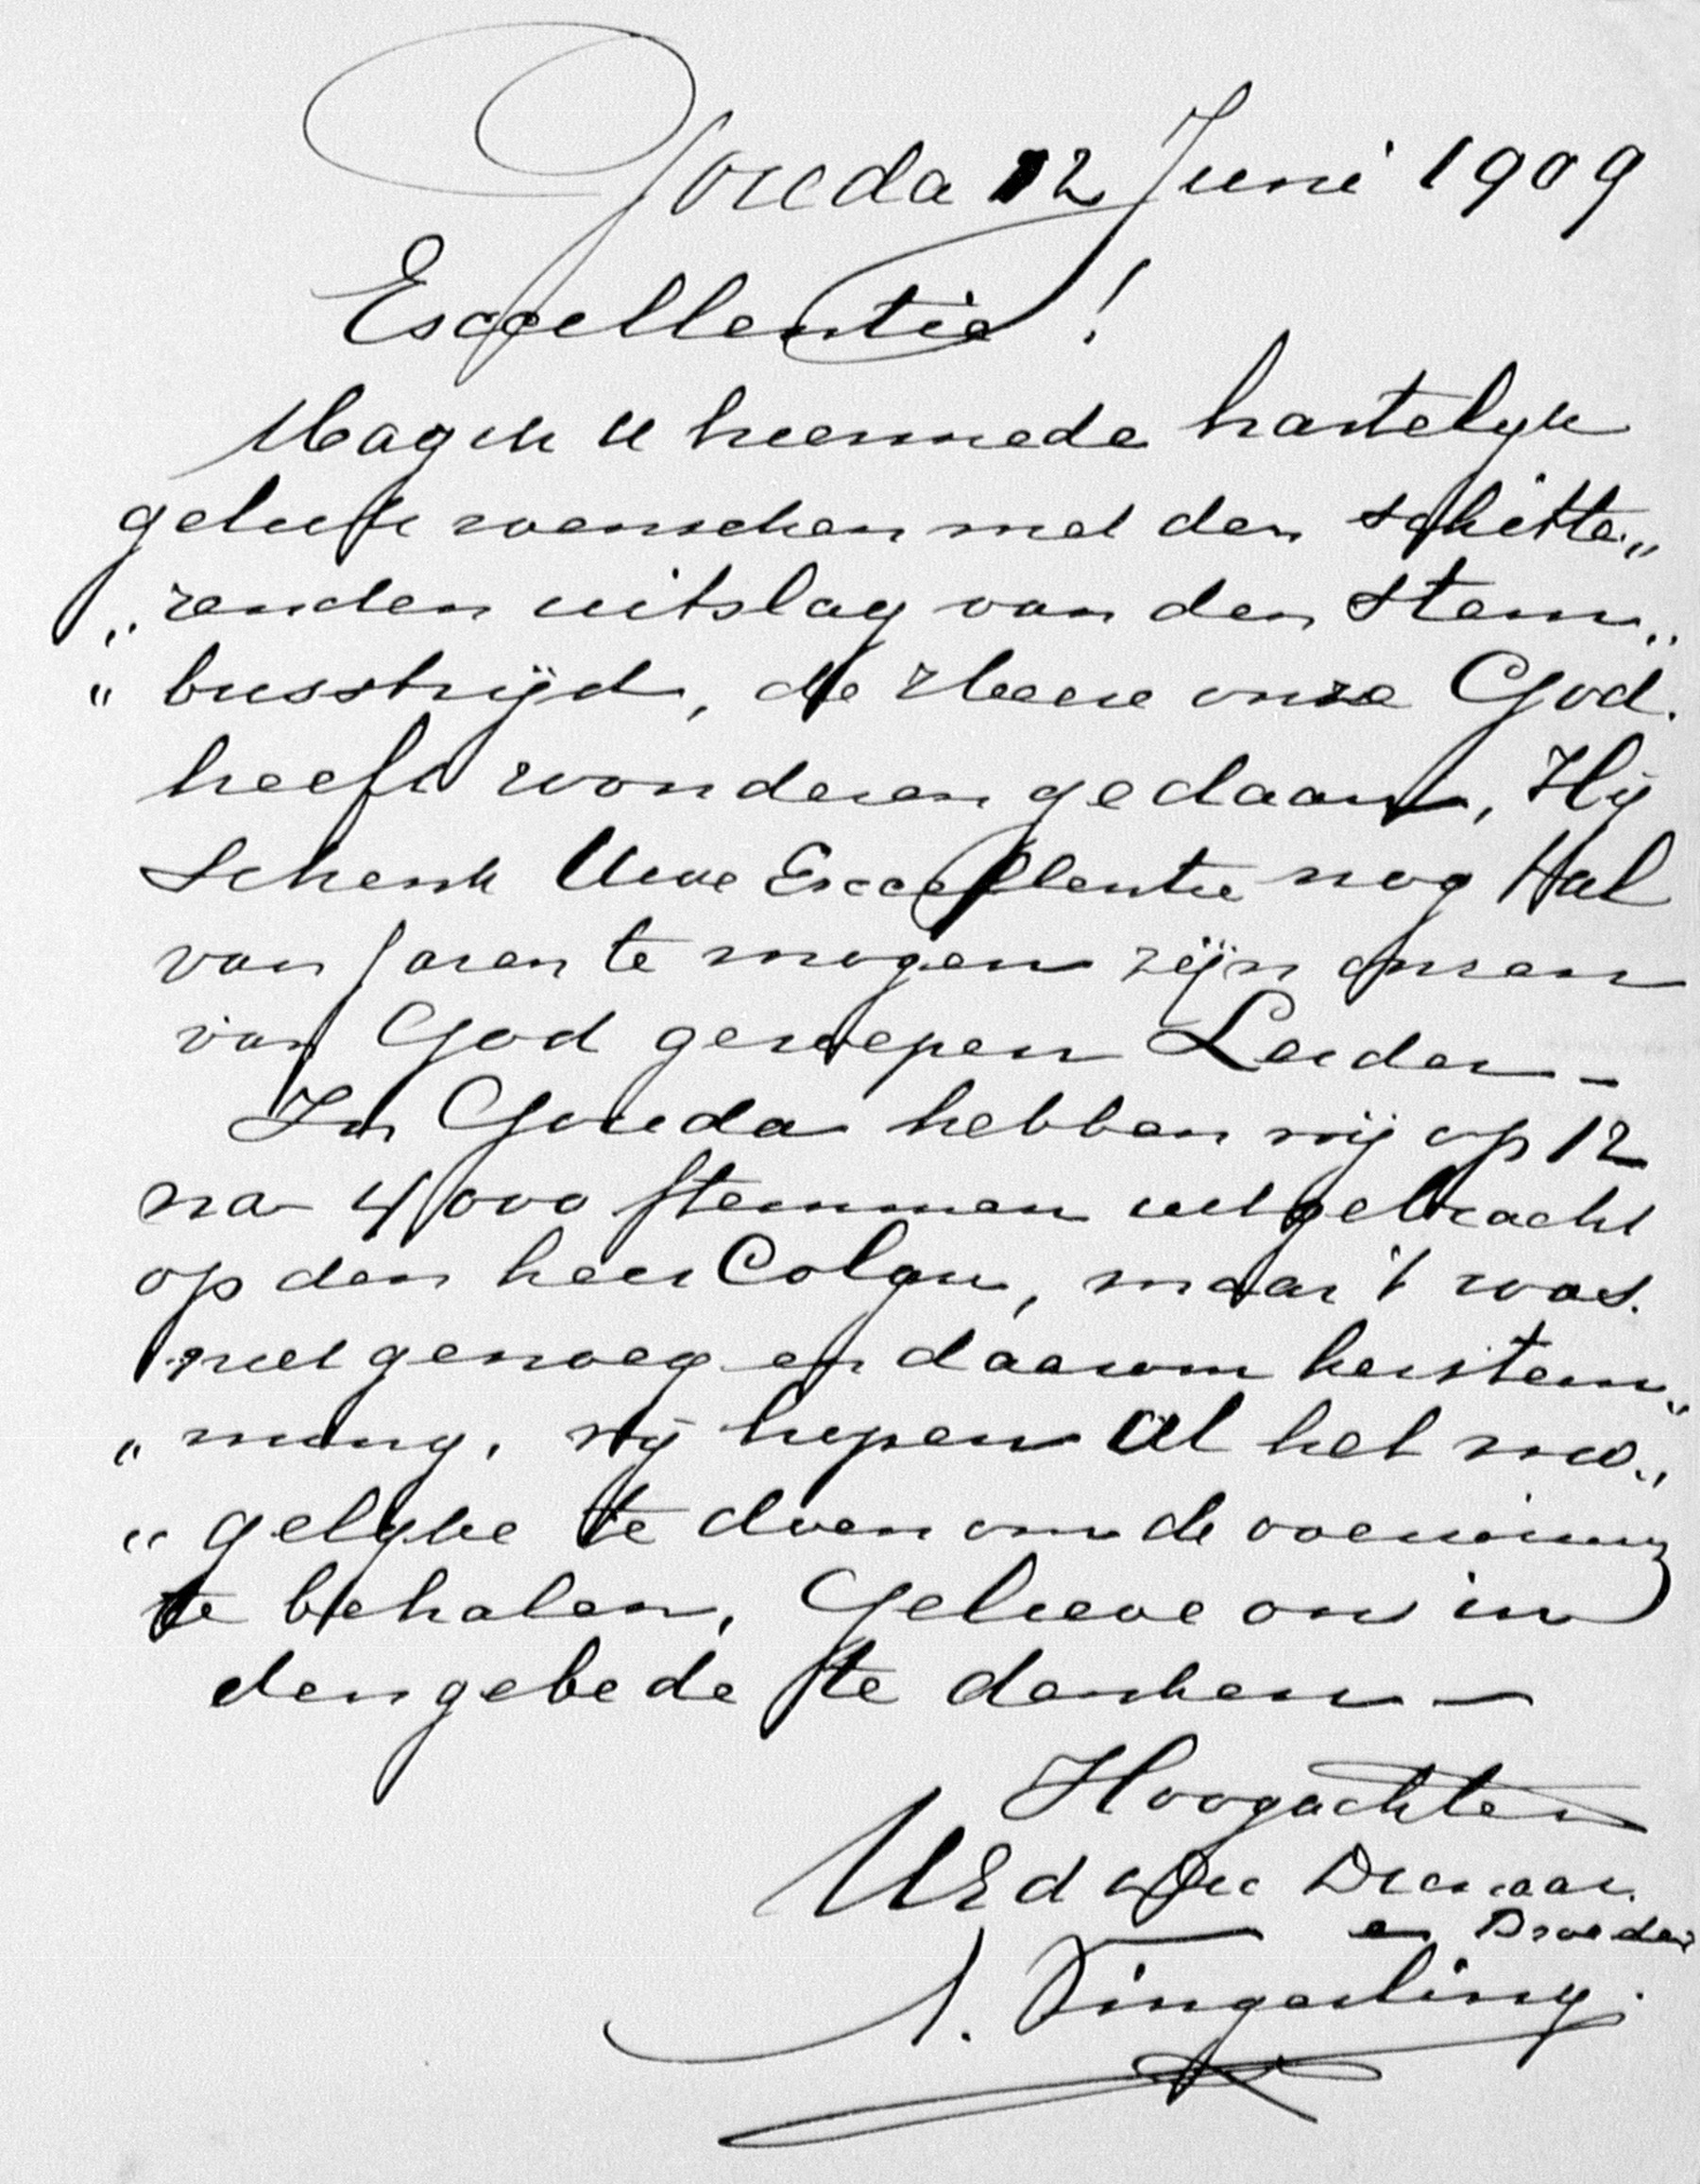 Gouda 12 Juni 1909
Excellentie!
Mag ik U hiermede hartelyk
geluk wenschen met den schitte„
„renden uitslag van den Stem„
„busstrijd, de Heere onze God.
heeft wonderen gedaan, Hij
Schenk Uwe Excellentie nog tal
van jaren te mogen zijn onzen
van God geroepen Leider_
In Gouda hebben wij op 12
na 4000 stemmen uitgebracht
op den heer Colijn, maar 't was.
niet genoeg en daarom herstem„
„ming, wij hopen al het mo„
„gelyke te doen om de overwinning
te behalen, Gelieve ons in
den gebede te denken—
Hoogachten
UEd Dw Dienaar.
en Broeder
A. Dingerling.